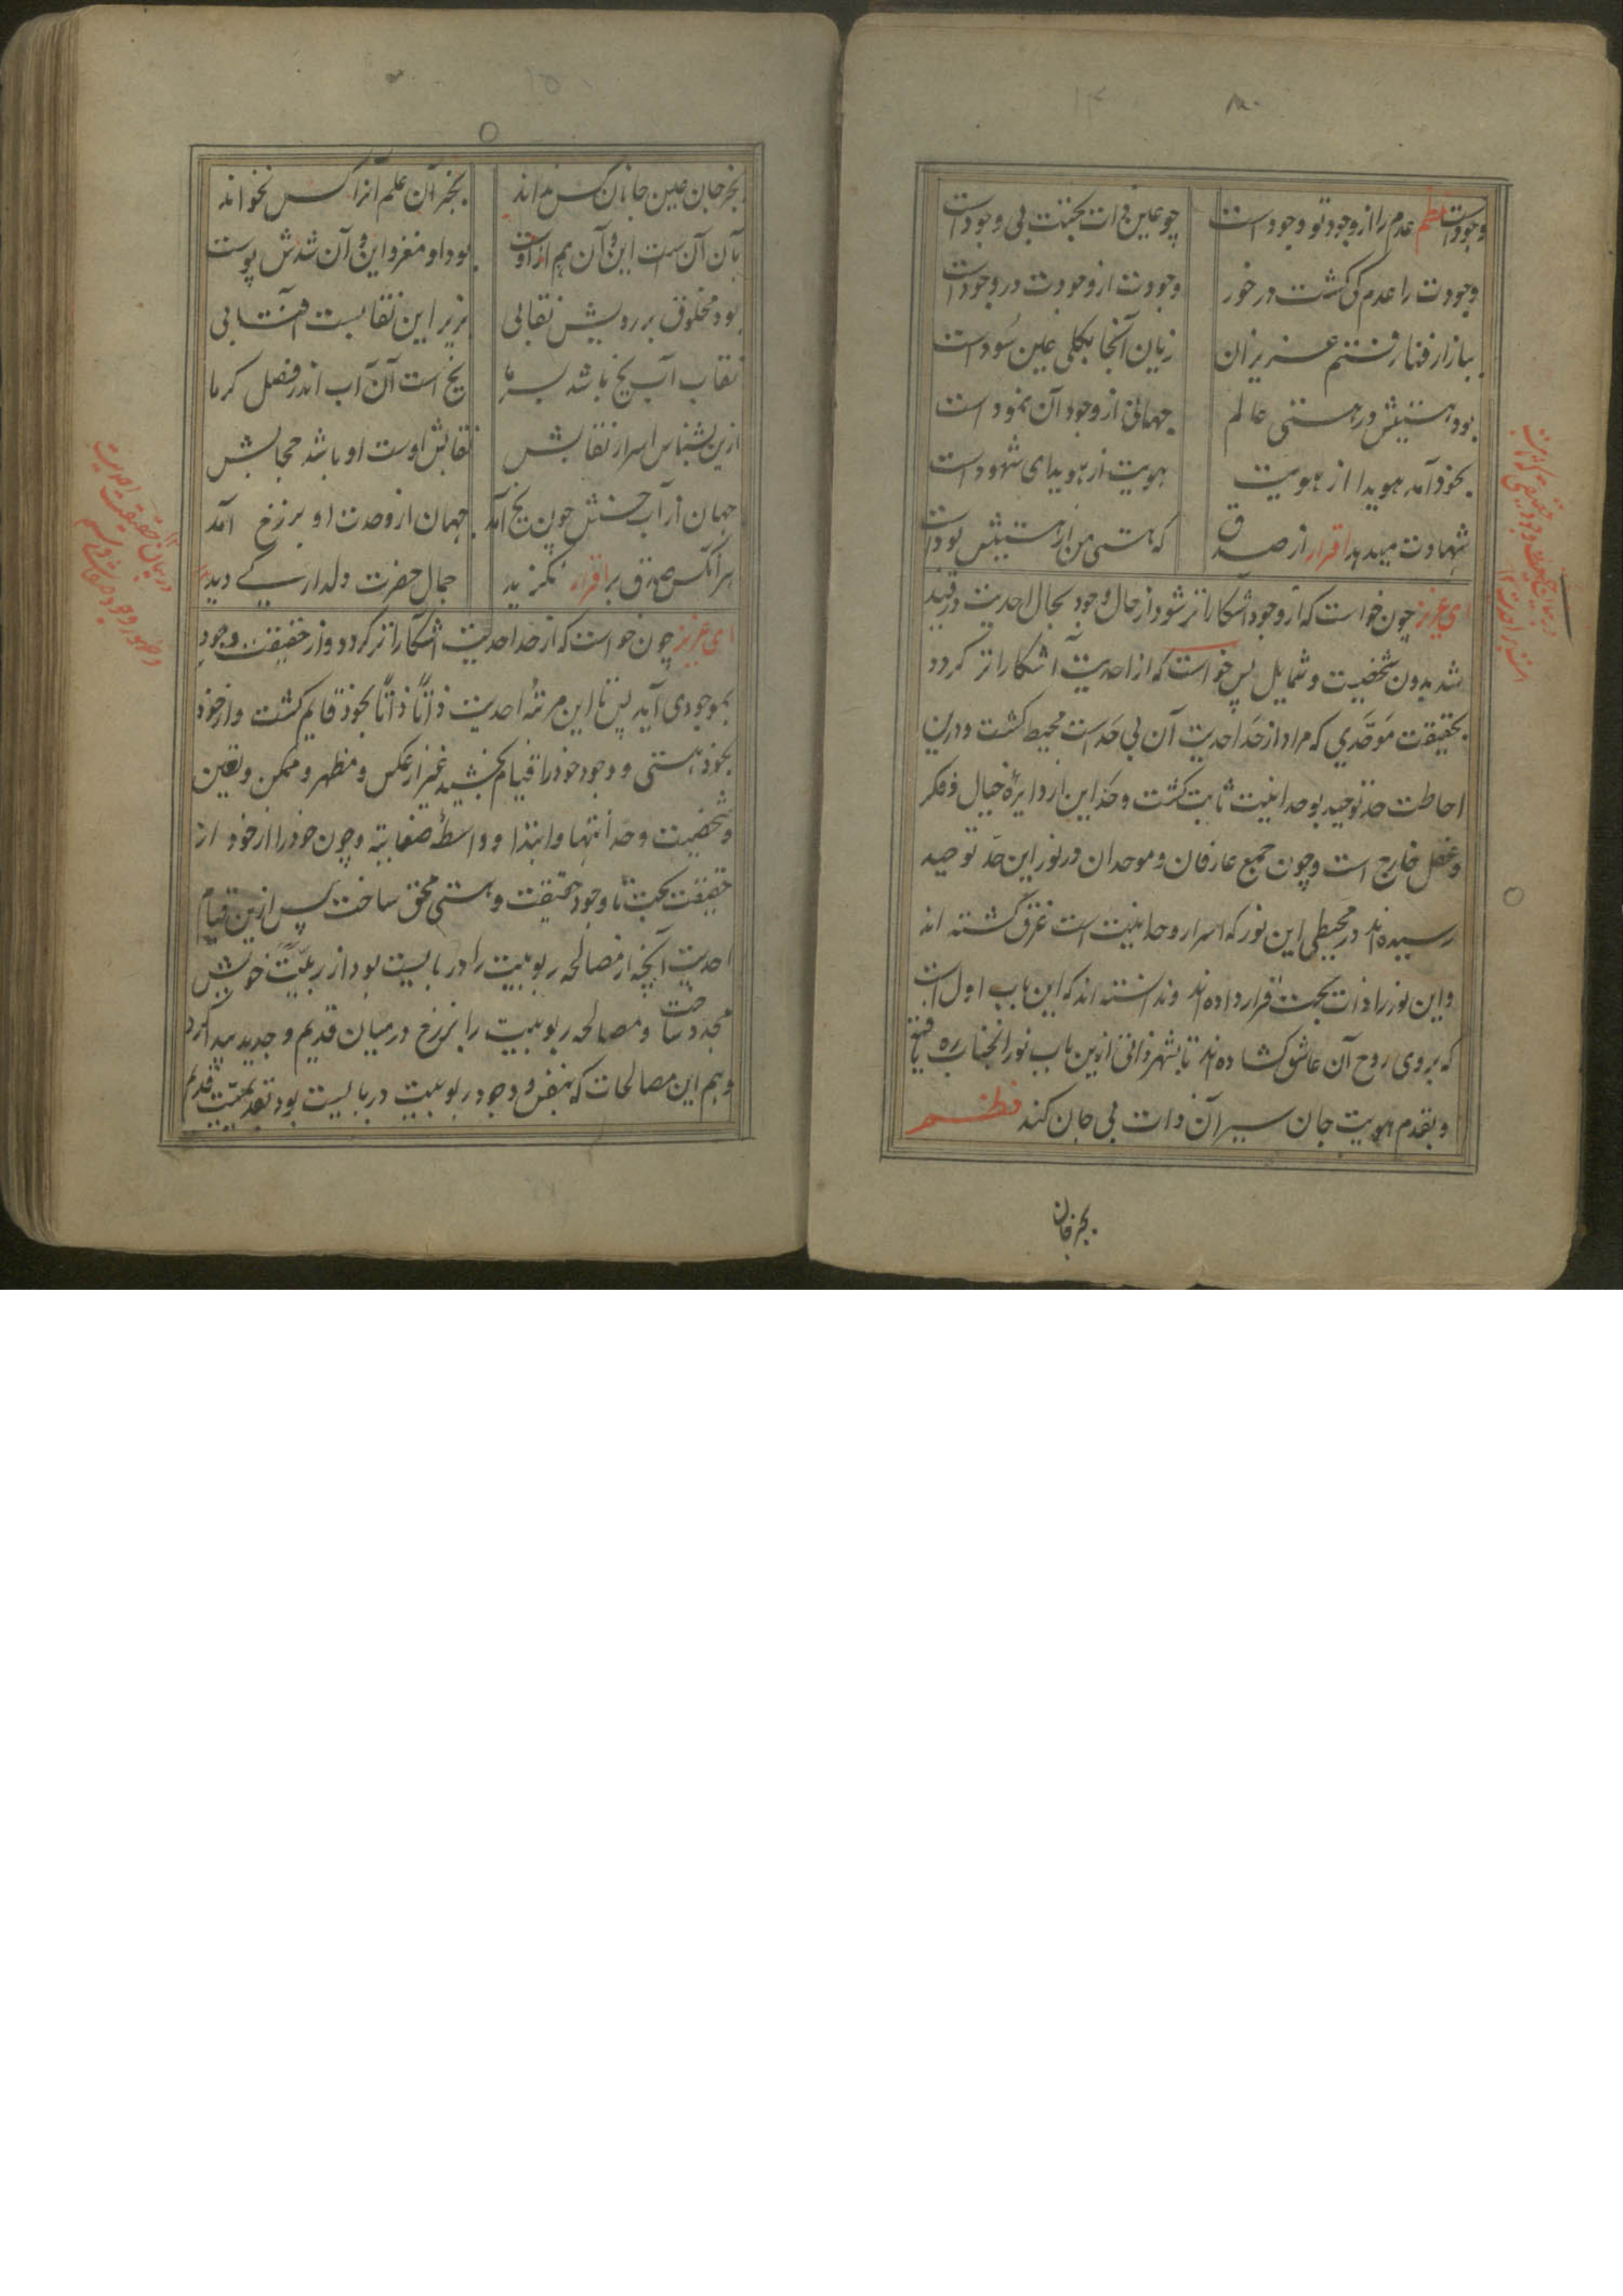 وجود است نظم عدم را از وجود تو وجود است چو عین ذات بحتت بی وجود است
وجودت را عدم کی گشت در خور وجودت از وجودت در وجود است
ببازار فنا رفتم عزیزان زیان آنجا بکلی عین سود است
بود هستیش در هستی عالم جهانی از وجود آن نمود است
بخود آمد هویدا از هویت هویت از هویدای شهود است
شهادت میدهد اقرار از صدق که هستی من از هستیش بود است
ای عزیز چون خواست که از وجود آشکاراتر شود از حال وجود بحال احدیت در قید
شد بدون شخصیت و شمایل پس خواست که از احدیت آشکاراتر گردد
بحقیقت موحدی که مراد از حد احدیت آن بی حد است محیط گشت و درین
احاطت حد توحید بوحدانیت ثابت گشت و حد این از دایرهٔ خیال و فکر
و عقل خارج است و چون جمیع عارفان و موحدان در نور این حد توحید
رسیده اند در محیطی این نور که اسرار وحدانیت است غرق گشته اند
و این نور را ذات بحت قرار داده اند و ندانسته اند که این باب اول است
که بروی روح آن عاشق گشاده اند تا بشهر ذاتی ازین باب نور آنجناب ره یافته
و بقدم هویت جان سیر آن ذات بی جان کند نظم
بجز جان
بجز جان عین جانان کس نداند بجز آن علم آنرا کس نخواند
بآن آن است این و آن هم از اوست بود او مغز و این و آن شدش پوست
بود مخلوق بر رویش نقابی بزیر این نقابست آفتابی
نقاب آب یخ باشد بسرما یخ است آن آب اندر فصل گرما
ازین بشناس اسرار نقابش نقابش اوست او باشد حجابش
جهان از آب حسنش چون یخ آمد جهان از وحدت او برزخ آمد
هر آنکس صدق بر اقرار نگزید جمال حضرت دلدار کی دید
ای عزیز چون خواست که از حد احدیت آشکاراتر گردد و از حقیقت وجود
بموجودی آید پس تا این مرتبهٔ احدیت ذاتاً ذاتاً بخود قایم گشت و از خود
بخود هستی و وجود خود را قیام بخشید غیر از عکس و مظهر و ممکن و تعین
و شخصیت و حد انتها و ابتدا و واسطهٔ صفاتیه و چون خود را از خود از
حقیقت بحت تا وجود حقیقت و هستی محقق ساخت پس ازین قیام
احدیت آنچه از مصالحه ربوبیت را در بایست بود از ربیت خویش
مجدد ساخت و مصالحه ربوبیت را برزخ در میان قدیم و جدید پیدا کرد
و هم این مصالحات که بنفس وجود ربوبیت در بایست بود بقدیمیت قدیم